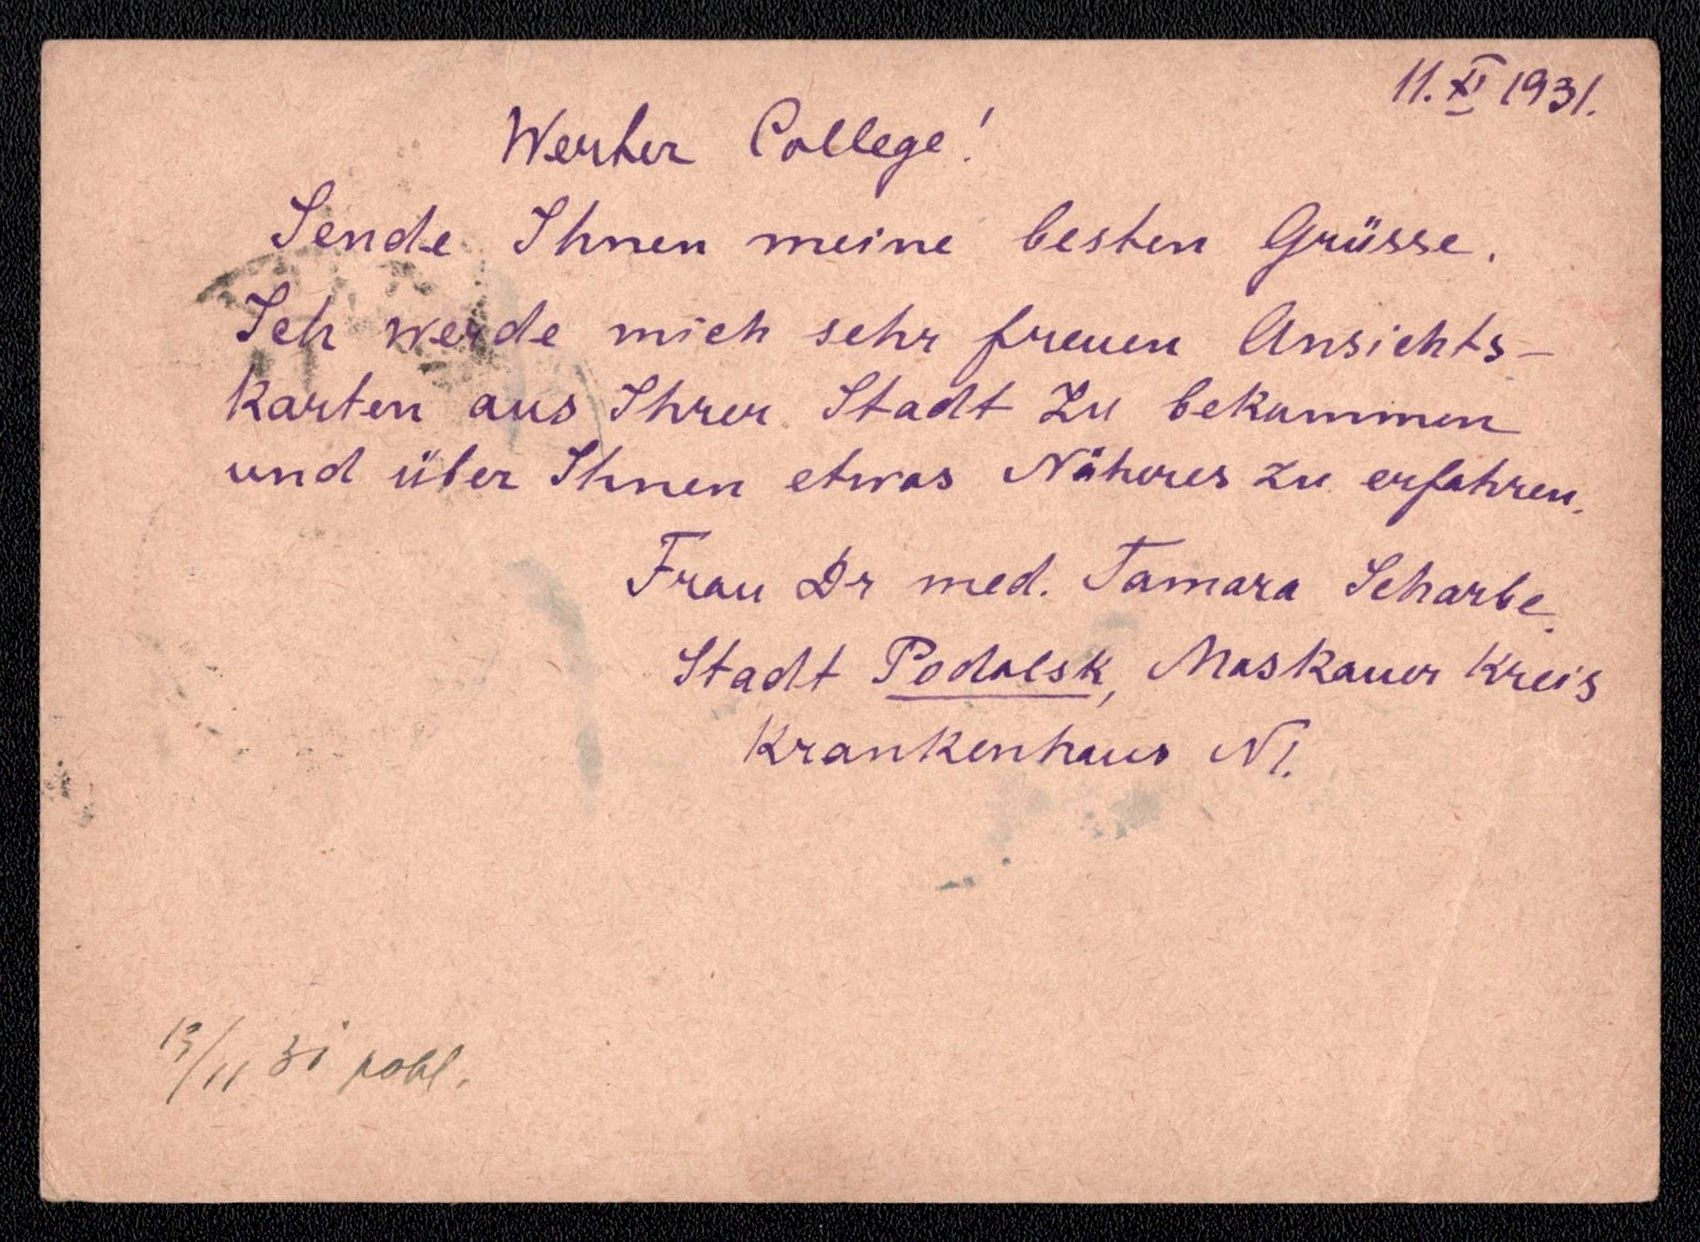 11. XI 1931.
Werter College!
Sende Ihnen meine besten Grüsse.
Ich werde mich sehr freuen Ansichts-
karten aus Ihrer Stadt zu bekommen
und über Ihnen etwas Näheres zu erfahren.
Frau Dr med. Tamara Scharbe.
Stadt Podolsk, Moskauer Kreis
Krankenhaus N1.
/11 31